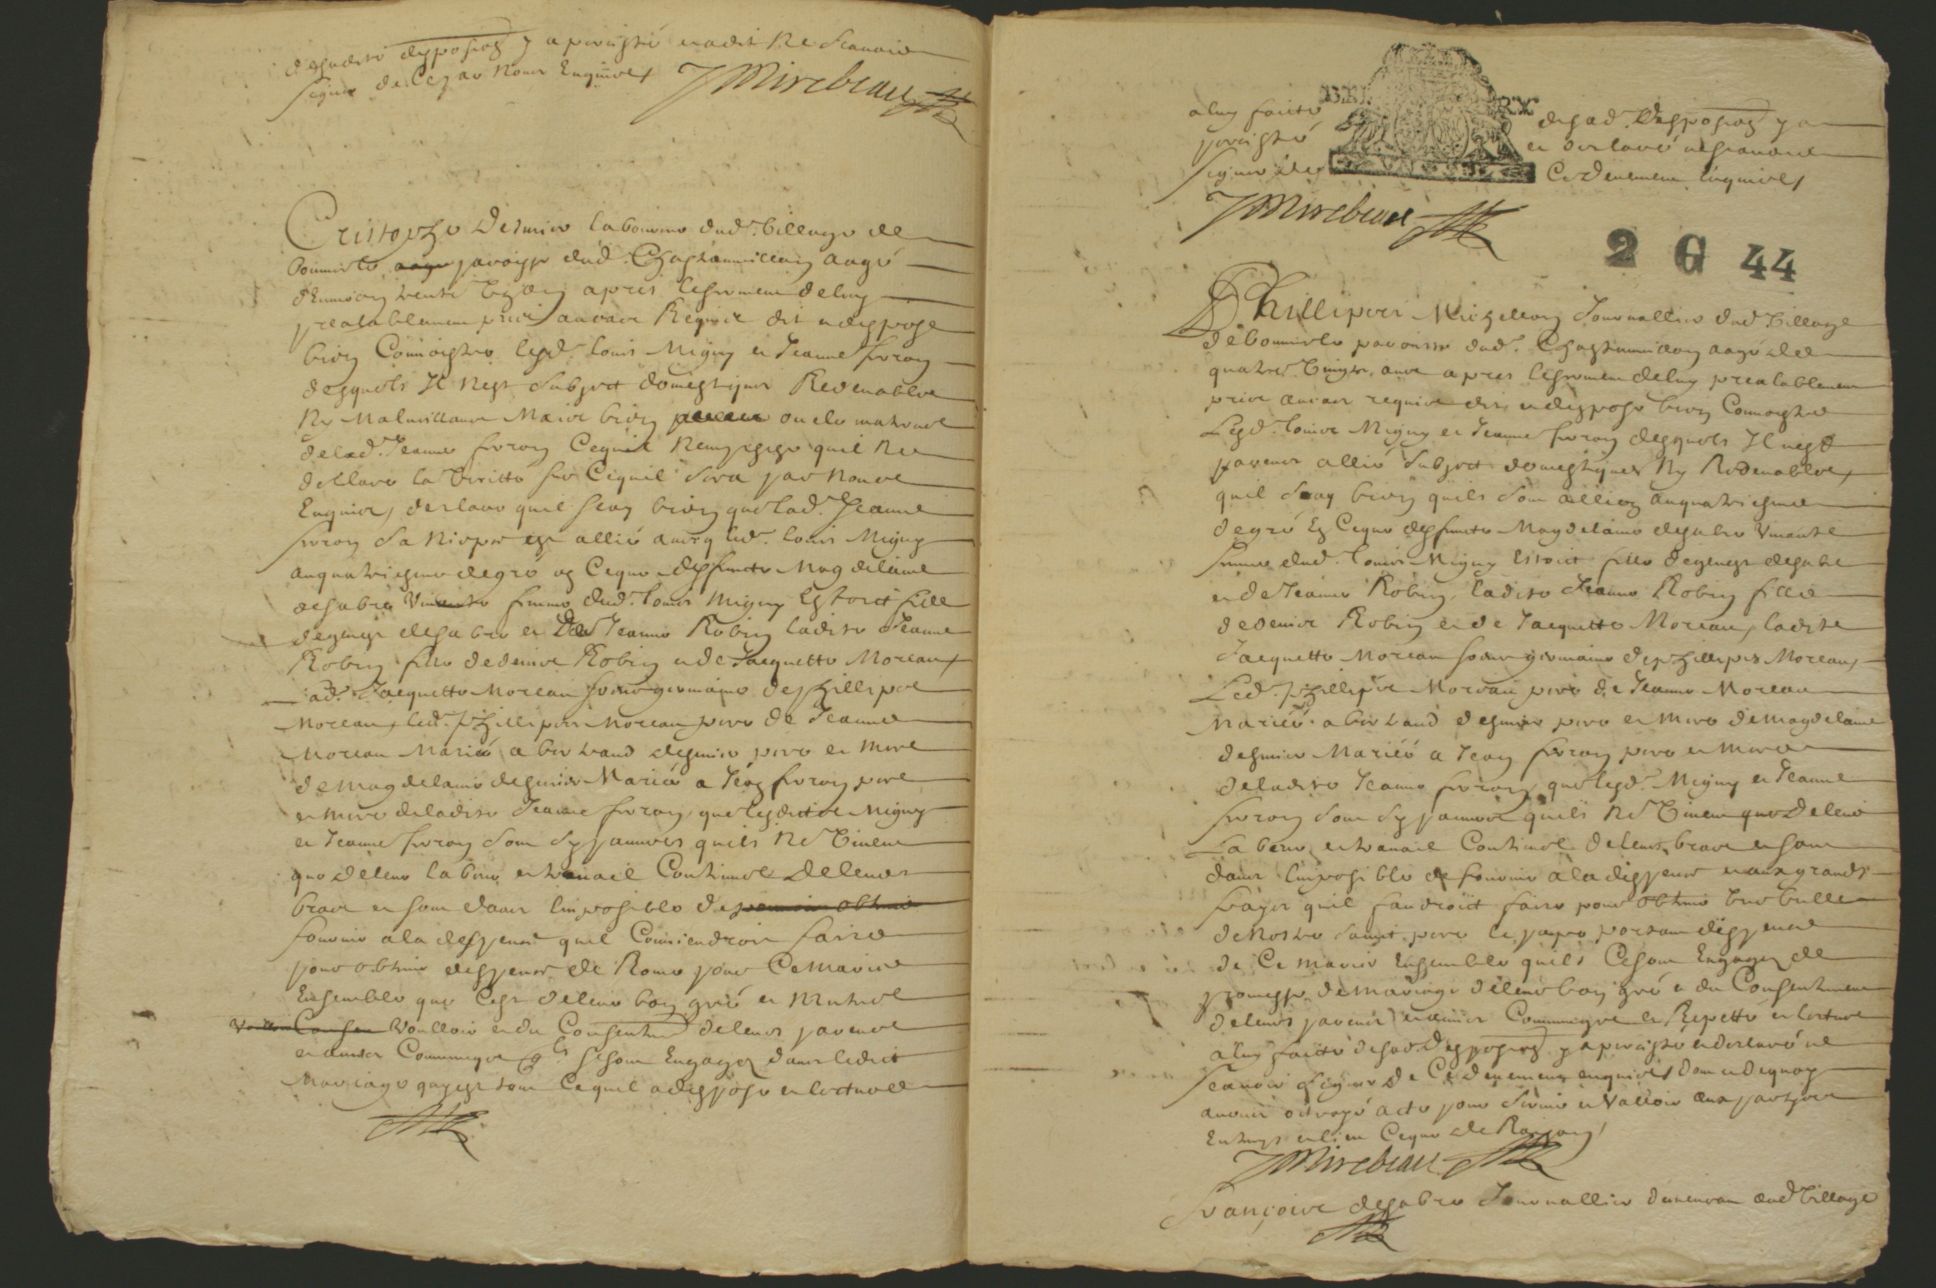 desadite depposi͠on y a percisté et adit ne scauoir
signer de ce par nous Enquis
JMirebeau
Cristophe Desmier laboureur dud. Village de
bonnirle parroysse dud. Chastaumillan aagé
denuiron trente ans apres le serment de luy
prealablement pris au cas Requis dit et depose
bien Connoistre lesd. louis Migny et Jeanne feron
desquels Il nest subject domestique Redeuable
Ny Malueillant Maire bien oncle maternel
delad. Jeanne feron Ce quil nempesche quil ne
declare la Veritté sur Ce quil sera par nous
Enquis, declare quil scay bien que lad. Jeanne
feron sa niepce est allié auecq led. louis Migny
au quatriesme degré en Ce que deffuncte Magdelaine
desabre viuante femme dud. louis Migny Estoit fille
de desabre et de Jeanne Robin ladite Jeanne
Robin fille de denis Robin et de Jacquette Moreau
lad. Jacquette Moreau soeur germaine de phillipe
Moreau, led. phillipes Moreau pere de Jeanne
Moreau Mariée a bertrand desmier pere et mere
de magdelaine desmier Mariée a Jean feron pere
et mere de ladite Jeanne feron, que lesdits Migny
et Jeanne feron sont sy pauures quils ne Viuent
que de leur labeur et trauail Continuel de leurs
bras et sont dans linposible de pouuoir obtenir
fournir a la despense quil Conuiendroit faire
pour obtenir dispense de Rome pour Ce marier
Ensemble que cest de leur bon gré et Mutuel
Voulloir et du Consentement de leurs parents
et amis Communs quils se sont Engagez dans ledict
Mariage quy est tout Ce quil a depposé et lecture
a luy faicte desad. depposi͠on y a
percisté et declaré ne scauoir
signer de Ce deuement Enquis
JMirebeau
2 G 44
Phillipes Michellon Journallier dud. Village
de bonnirle parroisse dud. Chastaumillan aagé de
quatre Vingts ans apres le serment de luy prealablement
pris au cas requis dit et depose bien Connoistre
Lesd. louis Migny et Jeanne feron desquels Il nest
parent allié subject domestique Ny Redeuable,
quil scay bien quils sont alliez au quatriesme
degré En Ce que deffuncte Magdelaine desabre Viuante
femme dud. louis Migny Estoit fille de desabre
et de Jeanne Robin, ladite Jeanne Robin fille
de denis Robin et de Jacquette Moreau, ladite
Jacquette Moreau soeur germaine de phillipes Moreau,
Led. phillipes Moreau pere de Jeanne Moreau
Mariée a bertrand desmier pere et mere de magdelaine
desmier Mariée a Jean feron pere et mere
de ladite Jeanne feron, que lesd. Migny et Jeanne
feron sont sy pauures quils Ne Viuent que de leur
Labeur et trauail Continuel de leurs bras et sont
dans linposible de fournir a la dispense et aux grands
frays quil faudroict faire pour obtenir Vne bulle
de Nostre sainct pere le pape portant dispense
de Ce marier Ensemble quils Ce sont Engagez de
promesse de mariage de leur bon gré et du Consentement
de leurs parents et amis Communs et Repetté et lecture
a luy faicte desad. depposi͠on y a percisté et declaré ne
scauoir signer de Ce deuement enquis, dont et de quoy
auons octroyé acte pour seruir et Valloir aux parties
En temps et lieu Ce que de Raison,
JMirebeau
Françoise desabre Journallier demeurant aud. Village